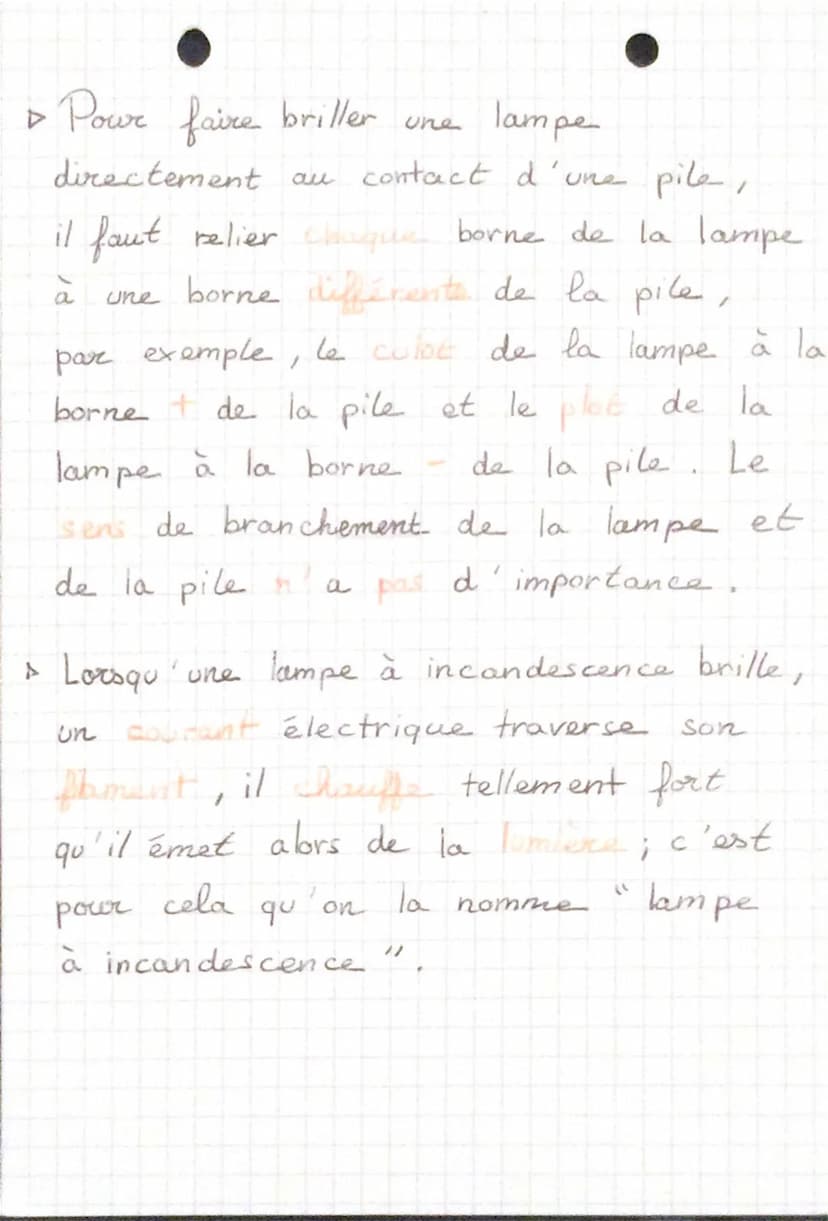 ▷ Pour faire briller une lampe
directement au contact d'une pile,
il faut relier chaque borne de la lampe
à une borne différente de la pile,
par exemple, le culot de la lampe à la
borne + de la pile et le plot de la
lampe à la borne - de la pile. Le
sens de branchement de la lampe et
de la pile n'a pas d'importance.
▷ Lorsqu'une lampe à incandescence brille,
un courant électrique traverse son
filament, il chauffe tellement fort
qu'il émet alors de la lumière ; c'est
pour cela qu'on la nomme "lampe
à incandescence".